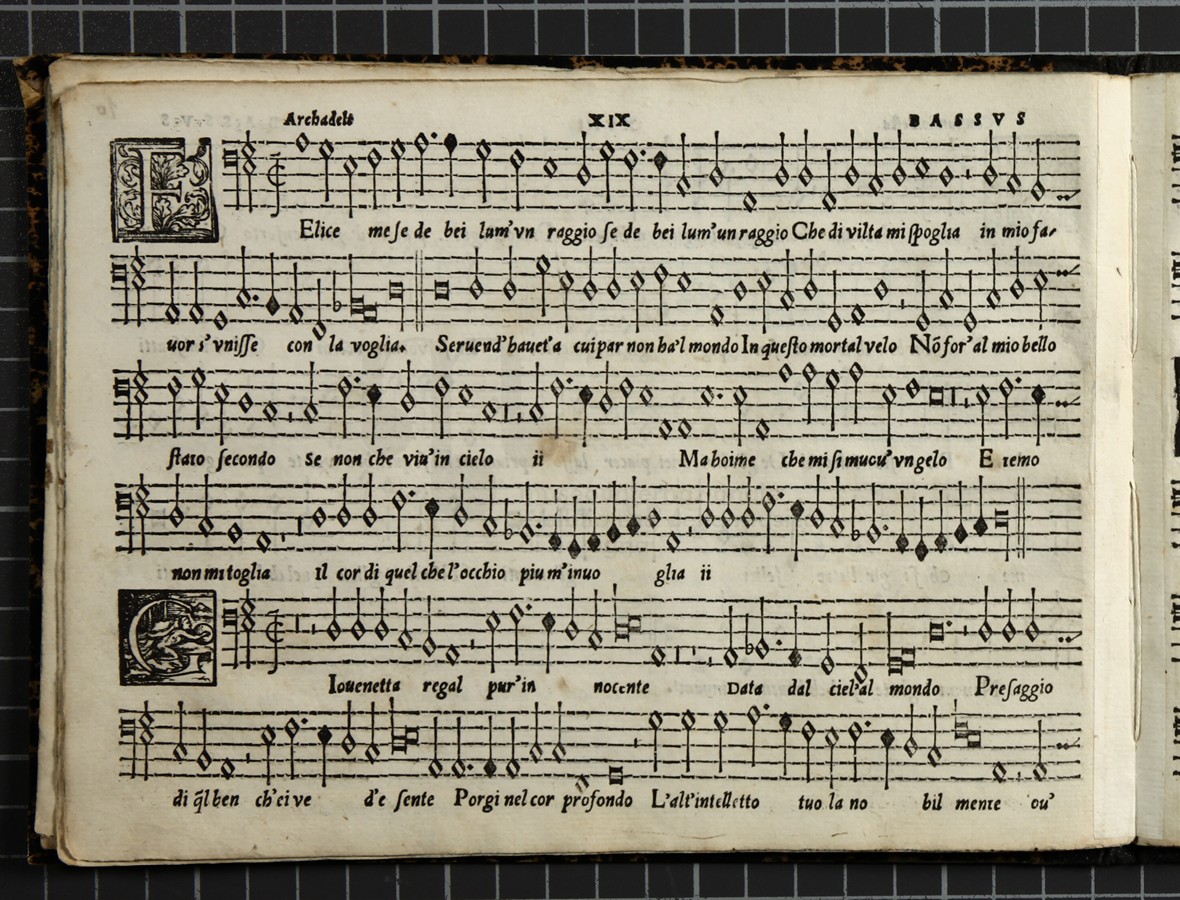 Archadelt XIX BASSVS
FElice me se de bei lum'vn raggio se de bei lum'un raggio Che di vilta mi spoglia in mio fa-
uor s'vnisse con la voglia. Seruend'hauet'a cui par non ha'l mondo In questo mortal velo Nõ for'al mio bello
stato secondo se non che viu'in cielo ii Ma hoime che mi si mucu'vn gelo E temo
non mi toglia Il cor di quel che l'occhio piu m'inuo glia ii
GIouenetta regal pur'in nocente Data dal ciel'al mondo Presaggio
di q̃l ben ch'ei ve d'e sente Porgi nel cor profondo L'alt'intelletto tuo la no bil mente ou'